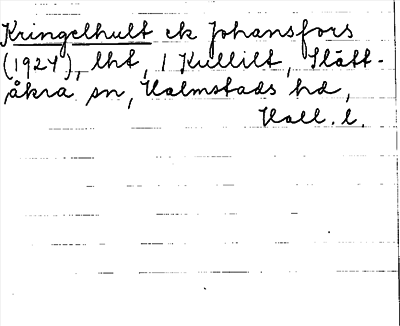 Kringelhult ek Johansfors
(1927), lht, 1 Kullilt, Slätt-
åkra sn, Halmstads hd,
Hall. l.